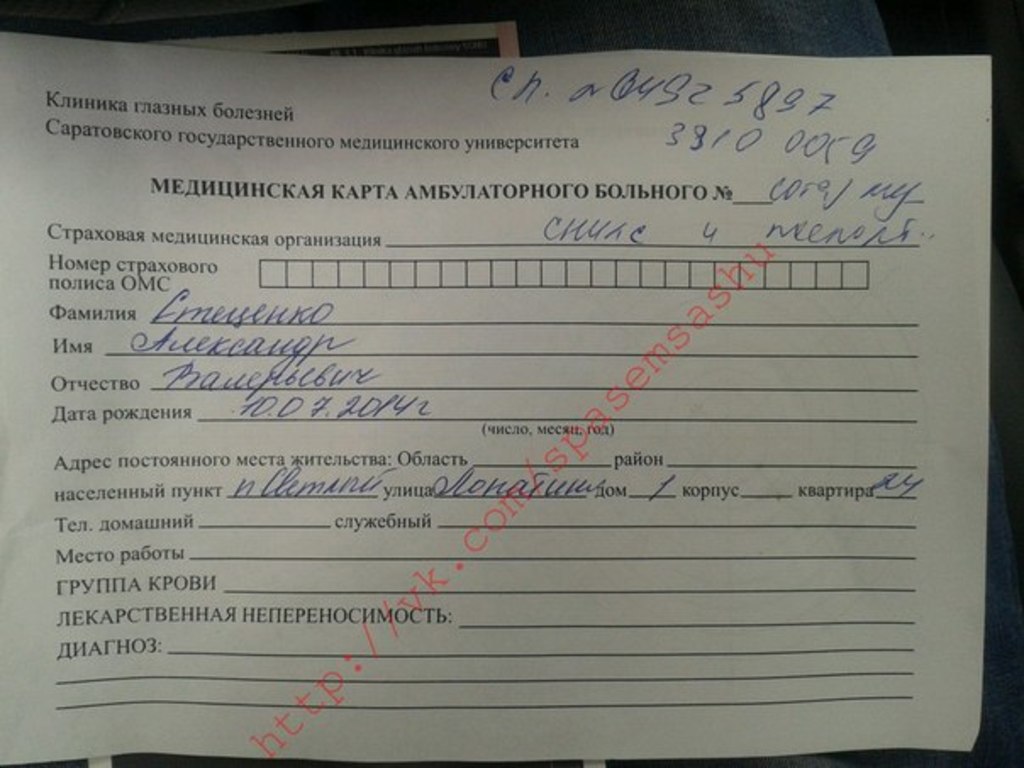 сп. № 0492 5897
Клиника глазных болезней
Саратовского государственного медицинского университета
3910 0059
МЕДИЦИНСКАЯ КАРТА АМБУЛАТОРНОГО БОЛЬНОГО №
Страховая медицинская организация СНИЛС и паспорт
Номер страхового
полиса ОМС
Фамилия Стеценко
Имя Александр
Отчество Валерьевич
Дата рождения 10.07.2014г
(число, месяц, год)
Адрес постоянного места жительства: Область район
населенный пункт п Светлый улица Лопатина дом 1 корпус квартира 24
Тел. домашний служебный
Место работы
ГРУППА КРОВИ
ЛЕКАРСТВЕННАЯ НЕПЕРЕНОСИМОСТЬ:
ДИАГНОЗ:
http://vk.com/spasemsashu